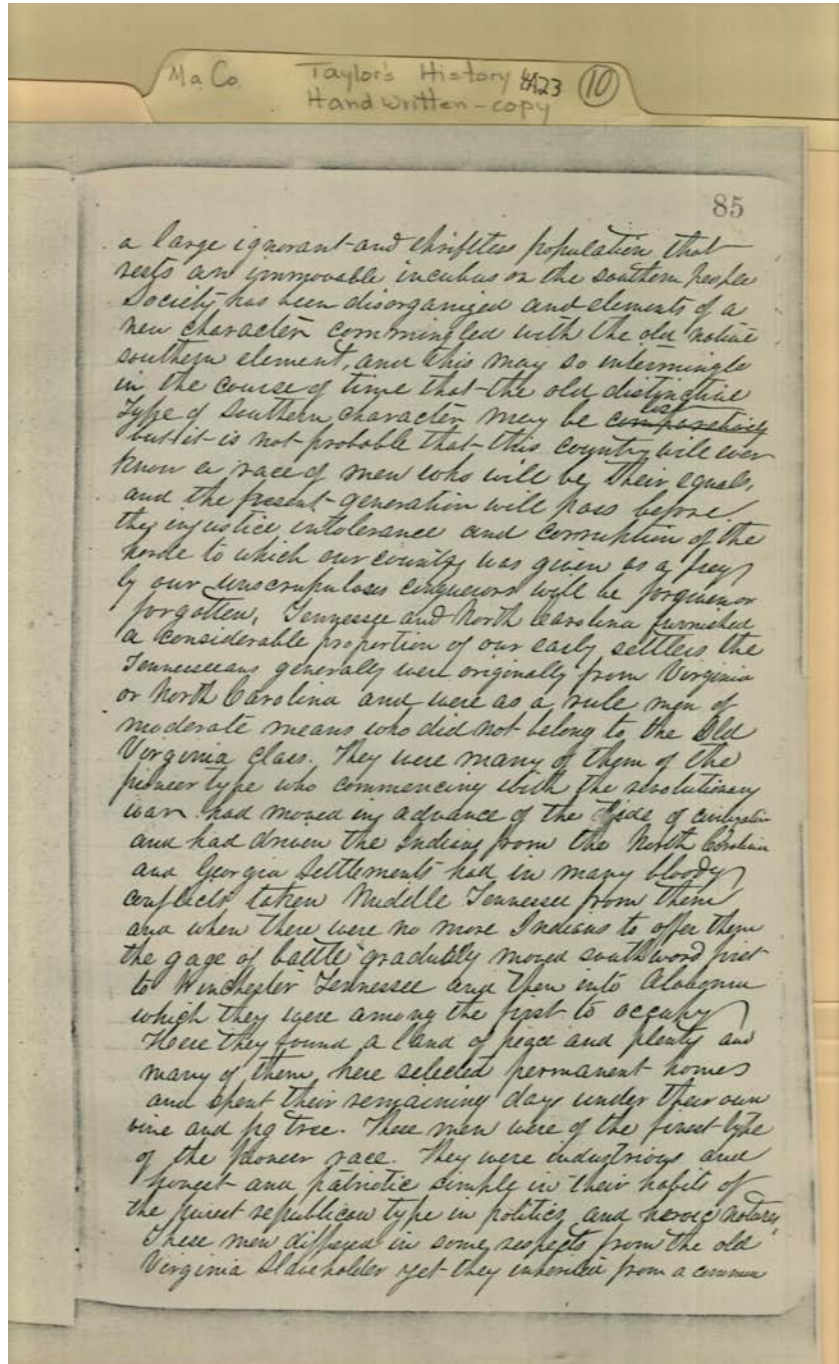 Ma Co. Taylor's History 4A23 10
Handwritten-copy
85
a large ignorant and thriftless population that
rests an immovable incubus on the southern people
Society has been disorganized and elements of a
new character commingled with the old native
southern element, and this may so intermingle
in the course of time that the old distinctive
type of Southern character may be comparatively lost
but it is not probable that this country will ever
know a race of men who will be their equals,
and the present generation will pass before
the injustice intolerance and corruption of the
horde to which our country was given as a prey
by our unscrupulous conquerors will be forgiven or
forgotten. Tennessee and North Carolina furnished
a considerable proportion of our early settlers the
Tennesseeans generally were originally from Virginia
or North Carolina and were as a rule men of
moderate means who did not belong to the Old
Virginia Class. They were many of them of the
pioneer type who commencing with the revolutionary
war had moved in advance of the tide of civilization
and had driven the Indians from the North Carolina
and Georgia Settlements had in many bloody
conflicts taken Middle Tennessee from them
and when there were no more Indians to offer them
the gage of battle gradually moved southword first
to Winchester Tennessee and then into Alabama
which they were among the first to occupy
Here they found a land of peace and plenty and
many of them here selected permanent homes
and spent their remaining days under their own
vine and fig tree. These men were of the finest type
of the pioneer race. They were industrious and
honest and patriotic simple in their habits of
the purest republican type in politics and heroic natures
These men differed in some respects from the old
Virginia Slaveholder yet they inherited from a common